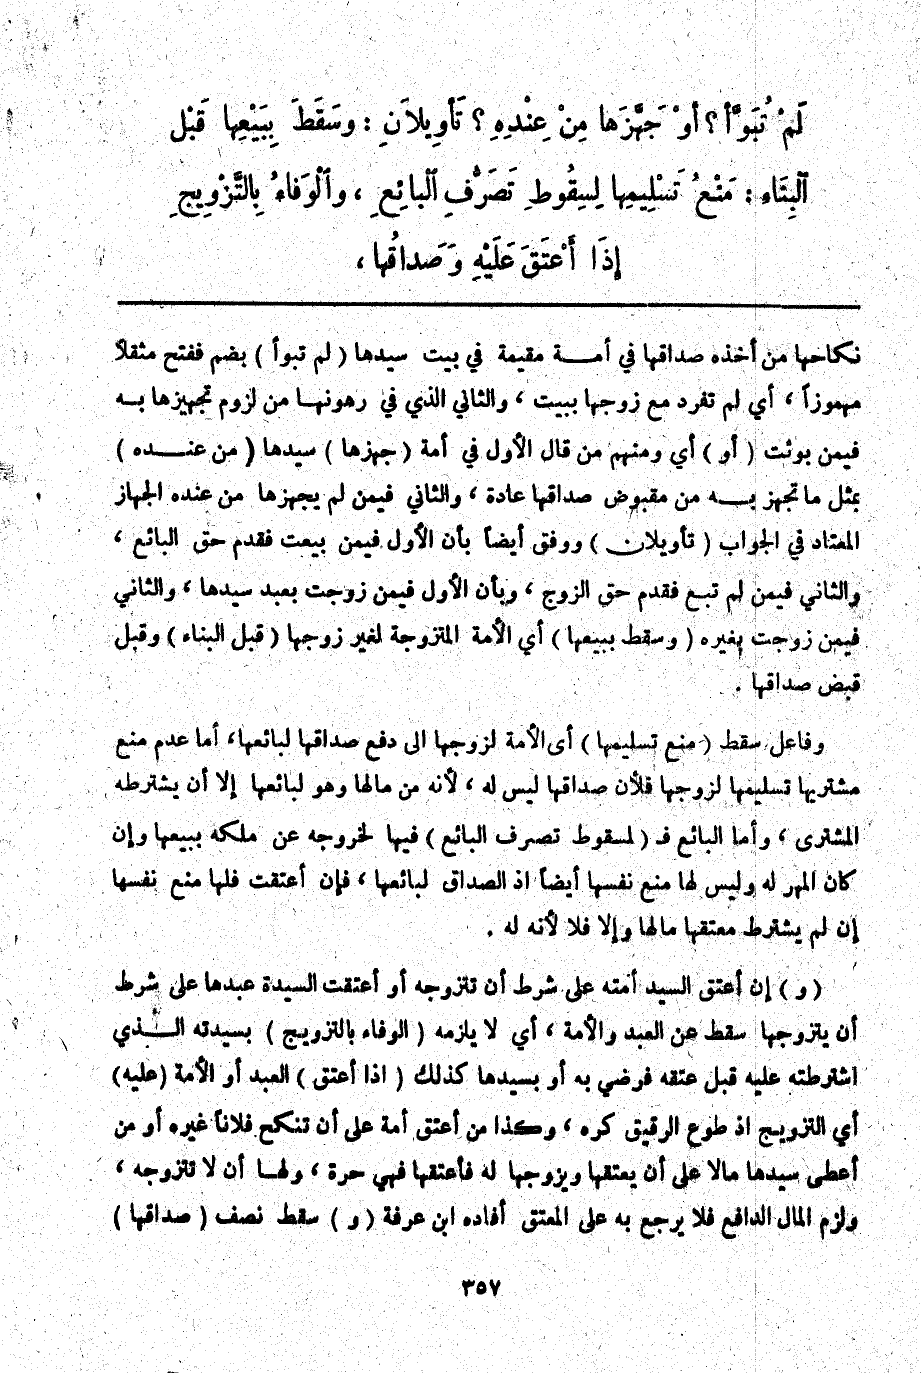 لَمْ تُبَوَّأْ؟ أَوْ جَهَّزَهَا مِنْ عِنْدِهِ؟ تَأْوِيلاَنِ : وسَقَطَ بِبَيْعِها قَبْلَ
ٱلْبِنَاءِ : مَنْعُ تَسْلِيمِها لِسِقُوطِ تَصَرُّفِ ٱلْبائِعِ ، وٱلْوَفاءُ بِالتَّزْوِيجِ
إِذَا أَعْتَقَ عَلَيْهِ وَصَداقُها ،
نكاحها من أخذه صداقها في أمــة مقيمة في بيت سيدها ( لم تبوأ ) بضم ففتح مثقلاً
مهموزاً ، أي لم تفرد مع زوجها ببيت ، والثاني الذي في رهونها من لزوم تجهيزها به
فيمن بوئت ( أو ) أي ومنهم من قال الأول في أمة ( جهزها ) سيدها ( من عنــده )
بمثل ما تجهز بــه من مقبوض صداقها عادة ، والثاني فيمن لم يجهزها من عنده الجهاز
المعتاد في الجواب ( تأويلان ) ووفق أيضاً بأن الأول فيمن بيعت فقدم حق البائع ،
والثاني فيمن لم تبع فقدم حق الزوج ، وبأن الأول فيمن زوجت بعبد سيدها ، والثاني
فيمن زوجت بغيره ( وسقط ببيعها ) أي الأمة المتزوجة لغير زوجها ( قبل البناء ) وقبل
قبض صداقها .
وفاعل سقط ( منع تسليمها ) أى الأمة لزوجها الى دفع صداقها لبائعها، أما عدم منع
مشتريها تسليمها لزوجها فلأن صداقها ليس له ، لأنه من مالها وهو لبائعها إلا أن يشترطه
المشترى ، وأما البائع فـ ( لسقوط تصرف البائع ) فيها لخروجه عن ملكه ببيعها وإن
كان المهر له وليس لها منع نفسها أيضاً اذ الصداق لبائعها ، فإن أعتقت فلها منع نفسها
إن لم يشترط معتقها مالها وإلا فلا لأنه له .
( و ) إن أعتق السيد أمته على شرط أن تتزوجه أو أعتقت السيدة عبدها على شرط
أن يتزوجها سقط عن العبد والأمة ، أي لا يلزمه ( الوفاء بالتزويج ) بسيدته الــذي
اشترطته عليه قبل عتقه فرضي به أو بسيدها كذلك ( اذا أعتق ) العبد أو الأمة (عليه)
أي التزويج اذ طوع الرقيق كره ، وكذا من أعتق أمة على أن تنكح فلاناً غيره أو من
أعطى سيدها مالا على أن يعتقها ويزوجها له فأعتقها فهي حرة ، ولها أن لا تتزوجه ،
ولزم المال الدافع فلا يرجع به على المعتق أفاده ابن عرفة ( و ) سقط نصف ( صداقها )
٣٥٧